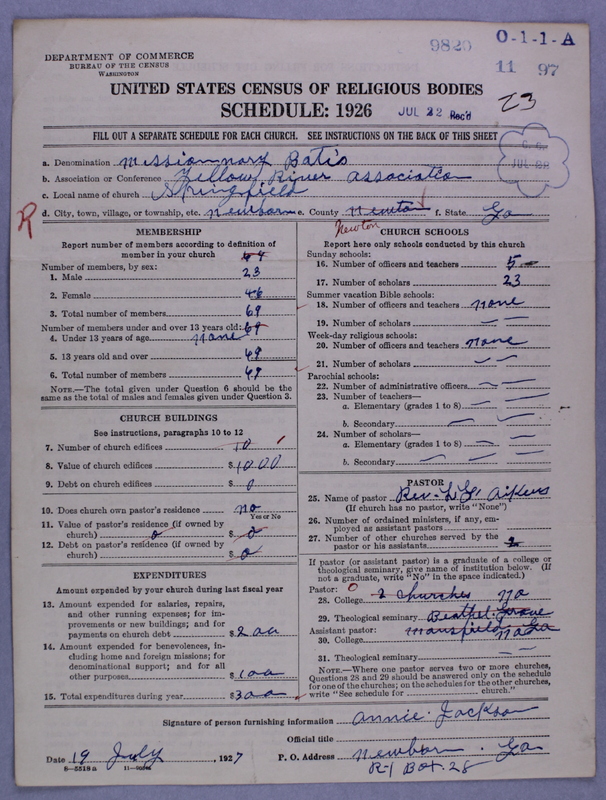 9820 O-1-1-A
DEPARTMENT OF COMMERCE
BUREAU OF THE CENSUS
WASHINGTON
11 97
UNITED STATES CENSUS OF RELIGIOUS BODIES
SCHEDULE: 1926 JUL 22 Rec'd 23
FILL OUT A SEPARATE SCHEDULE FOR EACH CHURCH. SEE INSTRUCTIONS ON THE BACK OF THIS SHEET
a. Denomination Missionnary Batis
b. Association or Conference Yellow River Association
c. Local name of church Springfield
d. City, town, village, or township, etc. Newborn e. County Newton f. State Ga
R
Newton
MEMBERSHIP
Report number of members according to definition of
member in your church
Number of members, by sex:
1. Male 23
2. Female 46
3. Total number of members 69
Number of members under and over 13 years old: 69
4. Under 13 years of age none
5. 13 years old and over 69
6. Total number of members 69
NOTE.—The total given under Question 6 should be
the same as the total of males and females given under Question 3.
CHURCH BUILDINGS
See instructions, paragraphs 10 to 12
7. Number of church edifices
8. Value of church edifices $1000
9. Debt on church edifices $0
10. Does church own pastor's residence no
Yes or No
11. Value of pastor's residence (if owned by
church) 0 $0
12. Debt on pastor's residence (if owned by
church) $0
EXPENDITURES
Amount expended by your church during last fiscal year
13. Amount expended for salaries, repairs,
and other running expenses; for im-
provements or new buildings; and for
payments on church debt $200
14. Amount expended for benevolences, in-
cluding home and foreign missions; for
denominational support; and for all
other purposes $100
15. Total expenditures during year $300
CHURCH SCHOOLS
Report here only schools conducted by this church
Sunday schools:
16. Number of officers and teachers 5
17. Number of scholars 23
Summer vacation Bible schools:
18. Number of officers and teachers none
19. Number of scholars
Week-day religious schools:
20. Number of officers and teachers none
21. Number of scholars
Parochial schools:
22. Number of administrative officers
23. Number of teachers—
a. Elementary (grades 1 to 8)
b. Secondary
24. Number of scholars—
a. Elementary (grades 1 to 8)
b. Secondary
PASTOR
25. Name of pastor Rev. L. G. Aikens
(If church has no pastor, write "None")
26. Number of ordained ministers, if any, em-
ployed as assistant pastors
27. Number of other churches served by the
pastor or his assistants 2
If pastor (or assistant pastor) is a graduate of a college or
theological seminary, give name of institution below. (If
not a graduate, write "No" in the space indicated.)
Pastor:
28. College 2 churches no
29. Theological seminary Beathel Grove
Assistant pastor: Mansfield Ga
30. College
31. Theological seminary
NOTE.—Where one pastor serves two or more churches,
Questions 28 and 29 should be answered only on the schedule
for one of the churches; on the schedules for the other churches,
write "See schedule for church."
Signature of person furnishing information Annie Jackson
Official title
Date 19 July, 1927 P. O. Address Newborn. Ga
8-5518a R-1 Box. 28